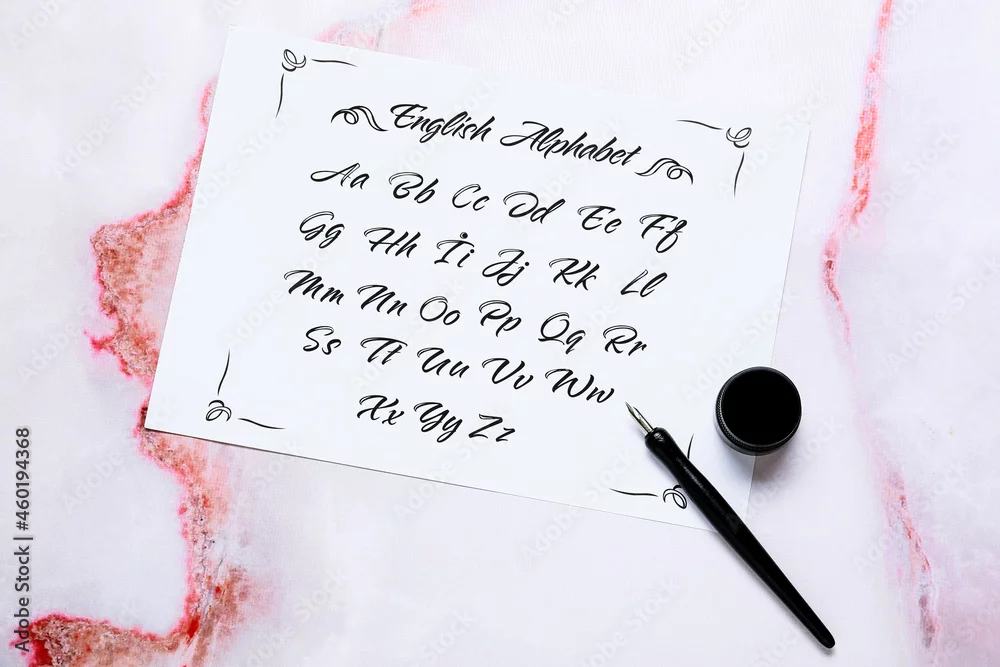 English Alphabet
Aa Bb Cc Dd Ee Ff
Gg Hh İi Jj Kk Ll
Mm Nn Oo Pp Qq Rr
Ss Tt Uu Vv Ww
Xx Yy Zz
Adobe Stock | #460194368